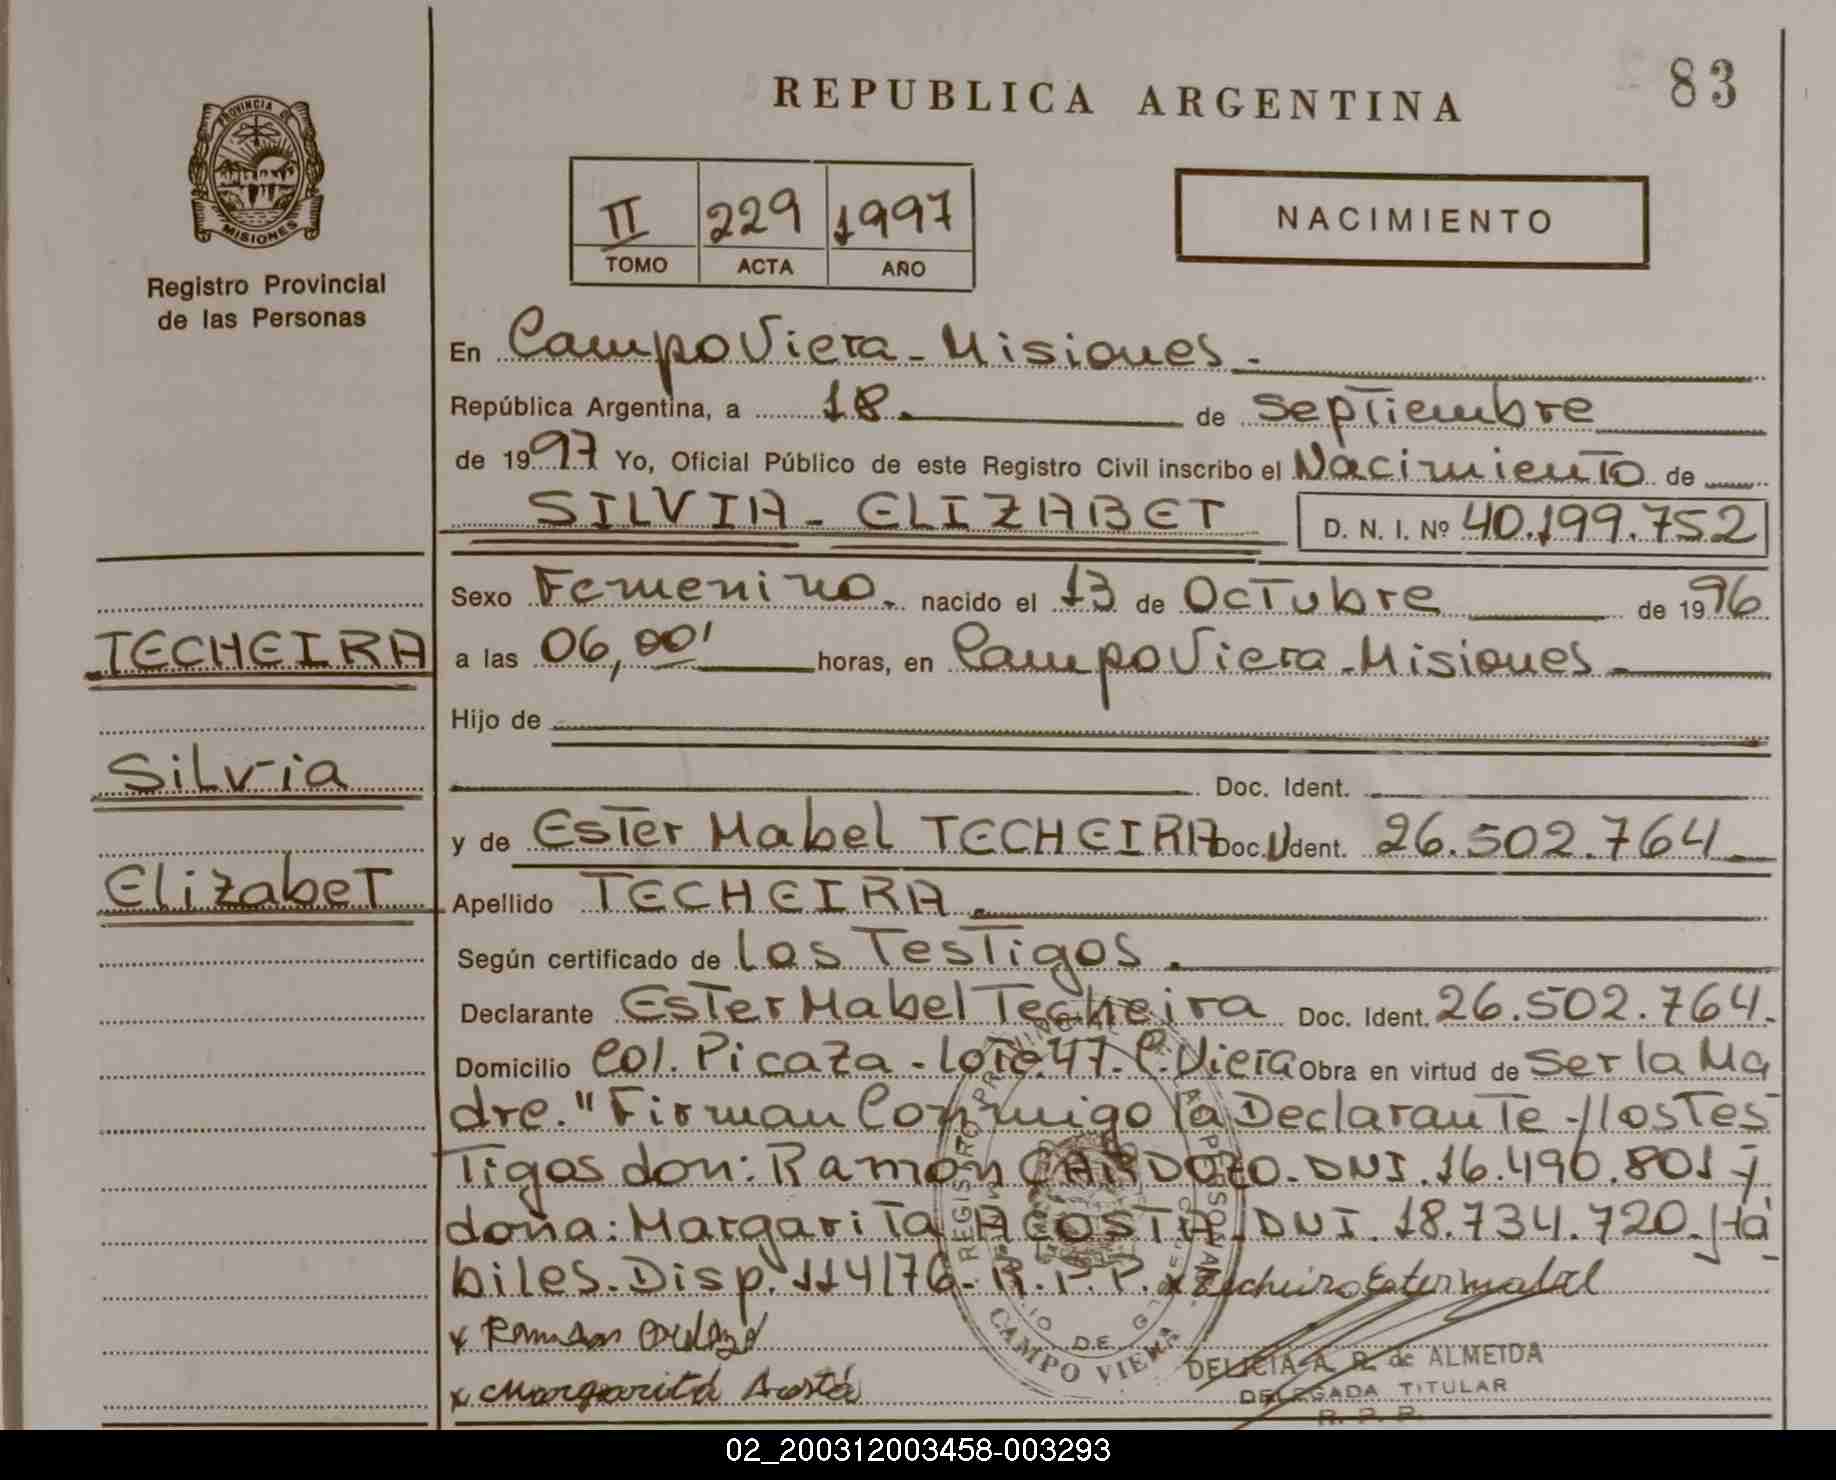 83
REPUBLICA ARGENTINA
PROVINCIA DE
MISIONES
Registro Provincial
de las Personas
II 229 1997
TOMO ACTA AÑO
NACIMIENTO
En Campo Viera - Misiones -
República Argentina, a 18. de Septiembre
de 1997 Yo, Oficial Público de este Registro Civil inscribo el Nacimiento de
SILVIA - ELIZABET D. N. I. Nº 40.199.752
Sexo Femenino. nacido el 13 de Octubre de 1996
TECHEIRA
a las 06,00' horas, en Campo Viera - Misiones -
Hijo de
Silvia
Doc. Ident.
y de Ester Mabel TECHEIRA Doc. Ident. 26.502.764 -
Elizabet
Apellido TECHEIRA.
Según certificado de los Testigos.
Declarante Ester Mabel Techeira Doc. Ident. 26.502.764.
Domicilio Col. Picaza - Lote 47 - C. Viera Obra en virtud de Ser la Ma
dre." Firman Conmigo la Declarante y los Tes
Tigos don: Ramón CARDOZO. DNI. 16.490.801 y
doña: Margarita ACOSTA. DNI. 18.734.720. Há
biles. Disp. 114/76 - R.P.P. x Techeira Ester Mabel
x Ramon
x Margarita Acosta
CAMPO VIERA
DELICIA A. R. de ALMEIDA
DELEGADA TITULAR
R. P. P.
02_200312003458-003293